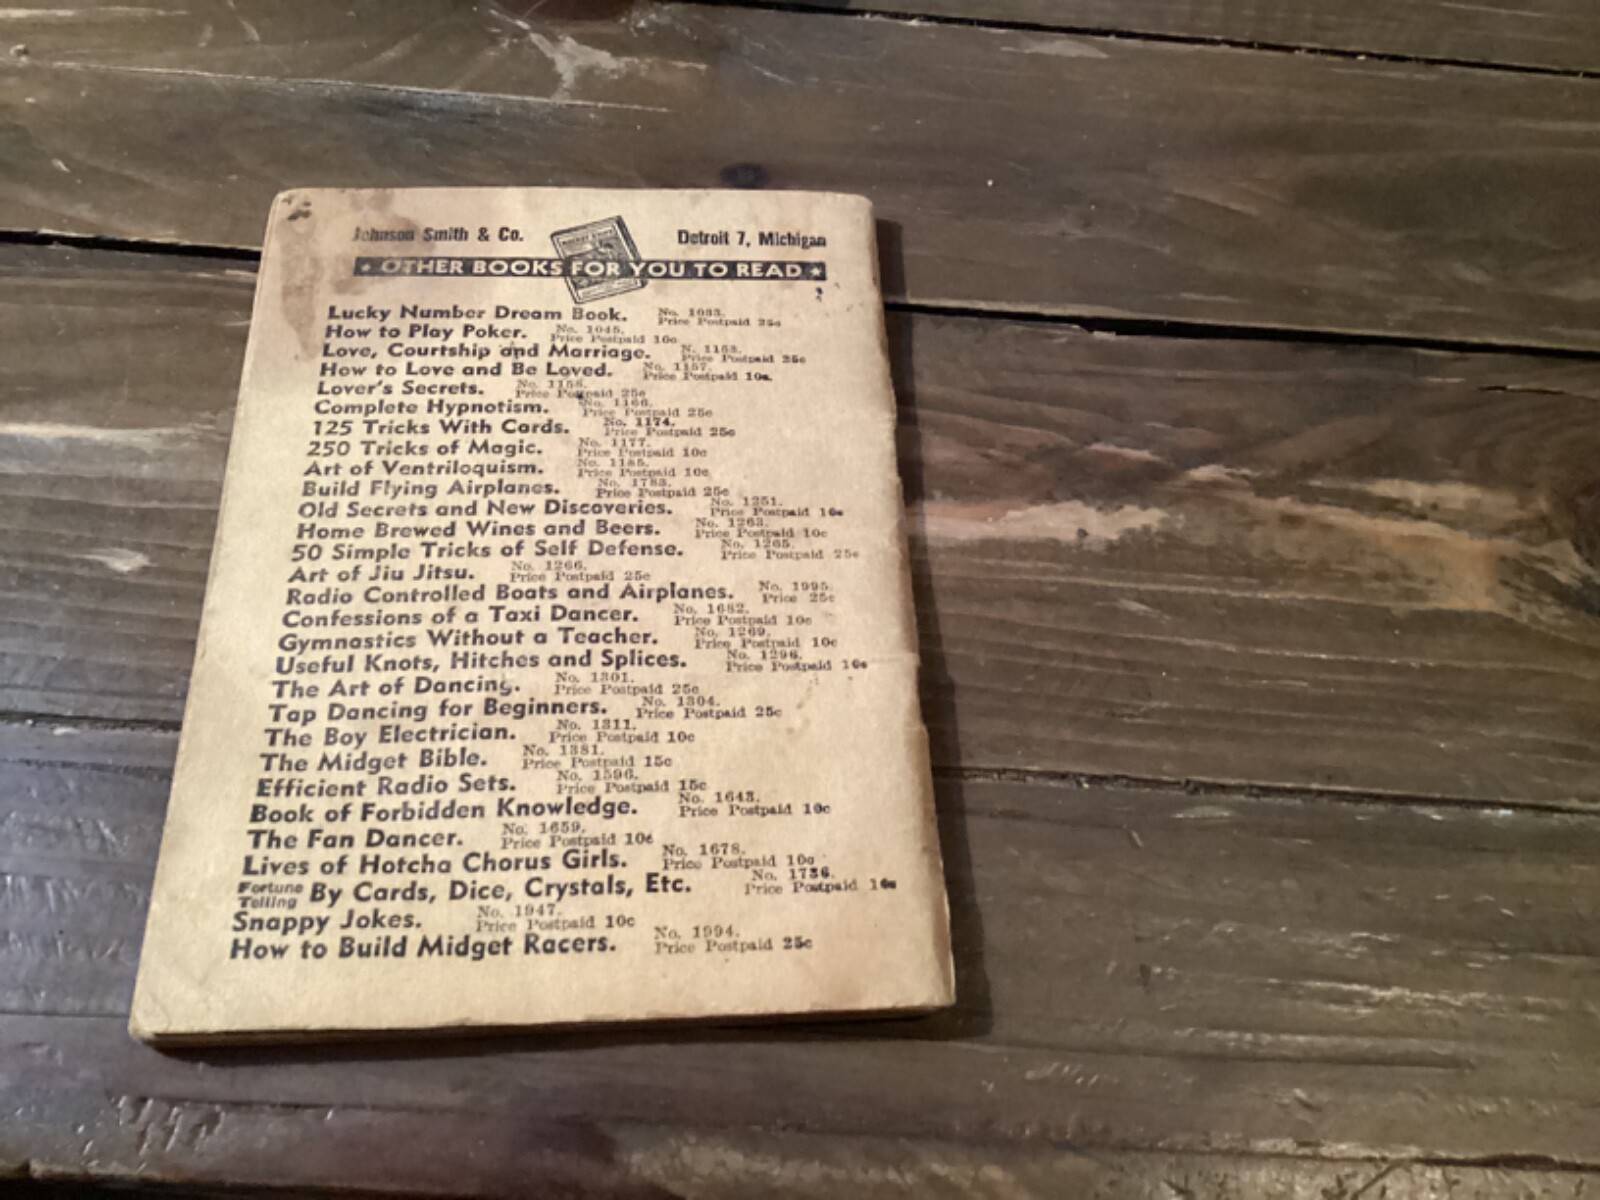 Johnson Smith & Co. Detroit 7, Michigan
OTHER BOOKS FOR YOU TO READ
Lucky Number Dream Book. No. 1033. Price Postpaid 25c
How to Play Poker. No. 1045. Price Postpaid 10c
Love, Courtship and Marriage. N. 1153. Price Postpaid 25c
How to Love and Be Loved. No. 1157. Price Postpaid 10c
Lover's Secrets. No. 1158. Price Postpaid 25c
Complete Hypnotism. No. 1166. Price Postpaid 25c
125 Tricks With Cards. No. 1174. Price Postpaid 25c
250 Tricks of Magic. No. 1177. Price Postpaid 10c
Art of Ventriloquism. No. 1185. Price Postpaid 10c
Build Flying Airplanes. No. 1783. Price Postpaid 25c
Old Secrets and New Discoveries. No. 1251. Price Postpaid 10c
Home Brewed Wines and Beers. No. 1263. Price Postpaid 10c
50 Simple Tricks of Self Defense. No. 1265. Price Postpaid 25c
Art of Jiu Jitsu. No. 1266. Price Postpaid 25c
Radio Controlled Boats and Airplanes. No. 1995. Price 25c
Confessions of a Taxi Dancer. No. 1682. Price Postpaid 10c
Gymnastics Without a Teacher. No. 1269. Price Postpaid 10c
Useful Knots, Hitches and Splices. No. 1296. Price Postpaid 10c
The Art of Dancing. No. 1301. Price Postpaid 25c
Tap Dancing for Beginners. No. 1304. Price Postpaid 25c
The Boy Electrician. No. 1311. Price Postpaid 10c
The Midget Bible. No. 1381. Price Postpaid 15c
Efficient Radio Sets. No. 1596. Price Postpaid 15c
Book of Forbidden Knowledge. No. 1643. Price Postpaid 10c
The Fan Dancer. No. 1659. Price Postpaid 10c
Lives of Hotcha Chorus Girls. No. 1678. Price Postpaid 10c
Fortune Telling By Cards, Dice, Crystals, Etc. No. 1736. Price Postpaid 10c
Snappy Jokes. No. 1947. Price Postpaid 10c
How to Build Midget Racers. No. 1994. Price Postpaid 25c